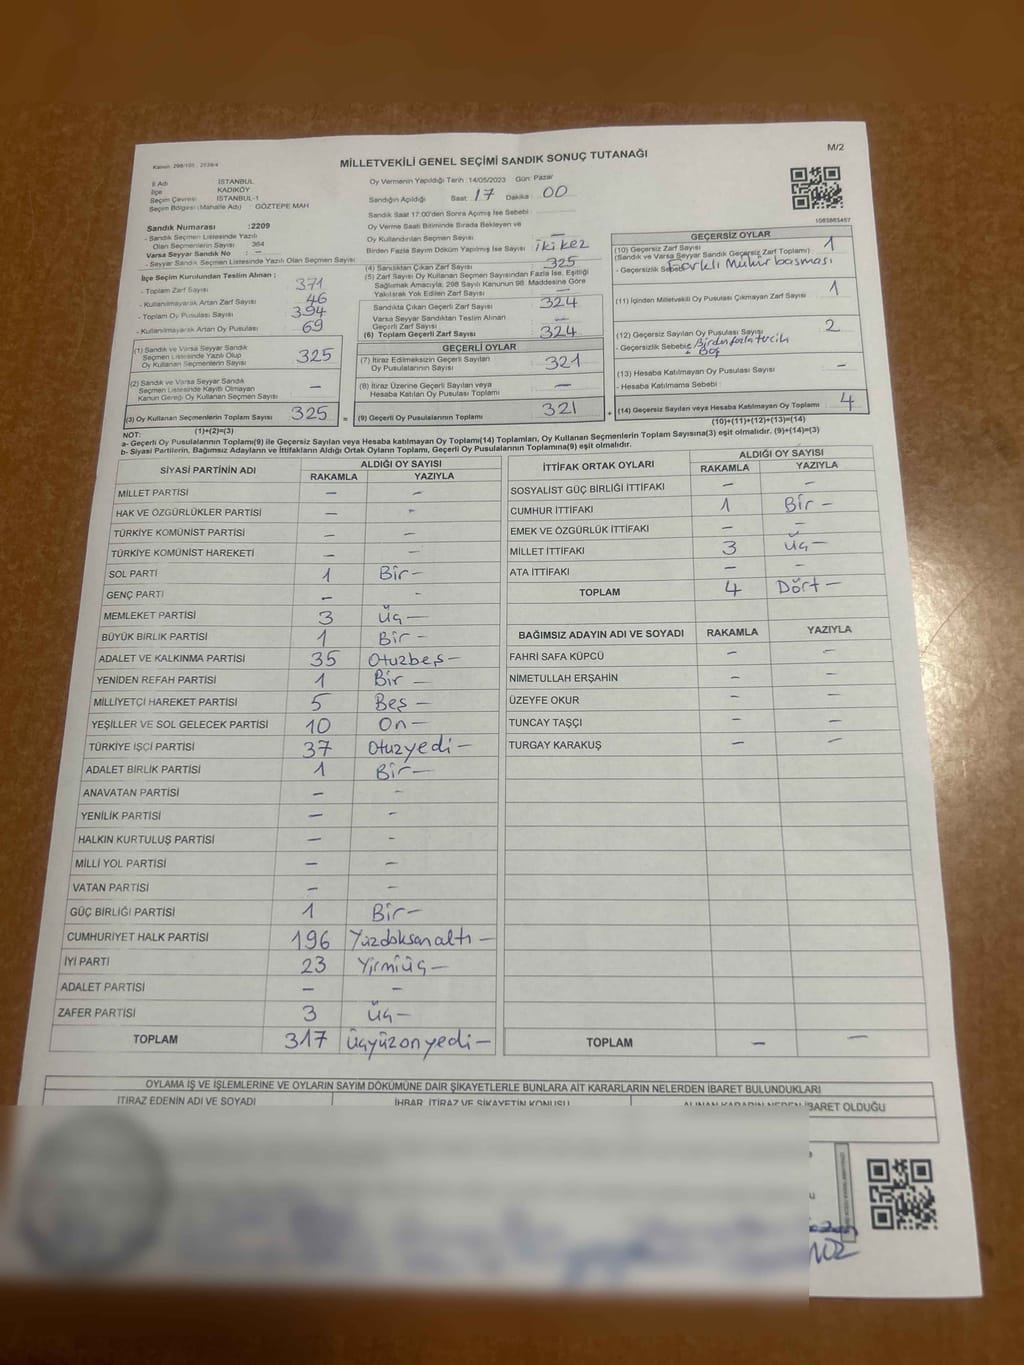 Kanun: 298/105 , 2839/4
MİLLETVEKİLİ GENEL SEÇİMİ SANDIK SONUÇ TUTANAĞI
M/2
İl Adı İSTANBUL
İlçe KADIKÖY
Seçim Çevresi İSTANBUL-1
Seçim Bölgesi (Mahalle Adı) GÖZTEPE MAH
Sandık Numarası :2209
- Sandık Seçmen Listesinde Yazılı
Olan Seçmenlerin Sayısı 364
Varsa Seyyar Sandık No : -
- Seyyar Sandık Seçmen Listesinde Yazılı Olan Seçmen Sayısı
Oy Vermenin Yapıldığı Tarih : 14/05/2023 Gün: Pazar
Sandığın Açıldığı Saat: 17 Dakika 00
Sandık Saat 17:00'den Sonra Açımış İse Sebebi :
Oy Verme Saati Bitiminde Sırada Bekleyen ve
Oy Kullandırılan Seçmen Sayısı —
Birden Fazla Sayım Döküm Yapılmış İse Sayısı iki kez
1083865457
İlçe Seçim Kurulundan Teslim Alınan ;
- Toplam Zarf Sayısı 371
- Kullanılmayarak Artan Zarf Sayısı 46
- Toplam Oy Pusulası Sayısı 394
- Kullanılmayarak Artan Oy Pusulası 69
(1) Sandık ve Varsa Seyyar Sandık
Seçmen Listesinde Yazılı Olup
Oy Kullanan Seçmenlerin Sayısı 325
(2) Sandık ve Varsa Seyyar Sandık
Seçmen Listesinde Kayıtlı Olmayan
Kanun Gereği Oy Kullanan Seçmen Sayısı —
(3) Oy Kullanan Seçmenlerin Toplam Sayısı 325
(1)+(2)=(3)
(4) Sandıktan Çıkan Zarf Sayısı 325
(5) Zarf Sayısı Oy Kullanan Seçmen Sayısından Fazla İse, Eşitliği
Sağlamak Amacıyla; 298 Sayılı Kanunun 98. Maddesine Göre
Yakılarak Yok Edilen Zarf Sayısı —
Sandıkta Çıkan Geçerli Zarf Sayısı 324
Varsa Seyyar Sandıktan Teslim Alınan
Geçerli Zarf Sayısı —
(6) Toplam Geçerli Zarf Sayısı 324
GEÇERLİ OYLAR
(7) İtiraz Edilmeksizin Geçerli Sayılan
Oy Pusulalarının Sayısı 321
(8) İtiraz Üzerine Geçerli Sayılan veya
Hesaba Katılan Oy Pusulası Sayısı —
= (9) Geçerli Oy Pusulalarının Toplamı 321
GEÇERSİZ OYLAR
(10) Geçersiz Zarf Sayısı 1
(Sandık ve Varsa Seyyar Sandık Geçersiz Zarf Toplamı)
- Geçersizlik Sebebi Farklı Mühür basması
(11) İçinden Milletvekili Oy Pusulası Çıkmayan Zarf Sayısı 1
(12) Geçersiz Sayılan Oy Pusulası Sayısı 2
- Geçersizlik Sebebi: Birden fazla tercih
+ Boş
(13) Hesaba Katılmayan Oy Pusulası Sayısı -
- Hesaba Katılmama Sebebi :
+ (14) Geçersiz Sayılan veya Hesaba Katılmayan Oy Toplamı 4
(10)+(11)+(12)+(13)=(14)
NOT:
a- Geçerli Oy Pusulalarının Toplamı(9) ile Geçersiz Sayılan veya Hesaba katılmayan Oy Toplamı(14) Toplamları, Oy Kullanan Seçmenlerin Toplam Sayısına(3) eşit olmalıdır. (9)+(14)=(3)
b- Siyasi Partilerin, Bağımsız Adayların ve İttifakların Aldığı Ortak Oyların Toplamı, Geçerli Oy Pusulalarının Toplamına(9) eşit olmalıdır.
SİYASİ PARTİNİN ADI ALDIĞI OY SAYISI
RAKAMLA YAZIYLA
MİLLET PARTİSİ — —
HAK VE ÖZGÜRLÜKLER PARTİSİ — -
TÜRKİYE KOMÜNİST PARTİSİ — —
TÜRKİYE KOMÜNİST HAREKETİ — —
SOL PARTİ 1 Bir -
GENÇ PARTİ - -
MEMLEKET PARTİSİ 3 Üç —
BÜYÜK BİRLİK PARTİSİ 1 Bir -
ADALET VE KALKINMA PARTİSİ 35 Otuzbeş —
YENİDEN REFAH PARTİSİ 1 Bir —
MİLLİYETÇİ HAREKET PARTİSİ 5 Beş —
YEŞİLLER VE SOL GELECEK PARTİSİ 10 On —
TÜRKİYE İŞÇİ PARTİSİ 37 Otuzyedi —
ADALET BİRLİK PARTİSİ 1 Bir —
ANAVATAN PARTİSİ — -
YENİLİK PARTİSİ — -
HALKIN KURTULUŞ PARTİSİ — -
MİLLİ YOL PARTİSİ — —
VATAN PARTİSİ — —
GÜÇ BİRLİĞİ PARTİSİ 1 Bir —
CUMHURİYET HALK PARTİSİ 196 Yüzdoksanaltı —
İYİ PARTİ 23 Yirmiüç —
ADALET PARTİSİ — —
ZAFER PARTİSİ 3 Üç —
TOPLAM 317 Üçyüzonyedi —
İTTİFAK ORTAK OYLARI ALDIĞI OY SAYISI
RAKAMLA YAZIYLA
SOSYALİST GÜÇ BİRLİĞİ İTTİFAKI — —
CUMHUR İTTİFAKI 1 Bir —
EMEK VE ÖZGÜRLÜK İTTİFAKI — —
MİLLET İTTİFAKI 3 Üç —
ATA İTTİFAKI — -
TOPLAM 4 Dört —
BAĞIMSIZ ADAYIN ADI VE SOYADI RAKAMLA YAZIYLA
FAHRİ SAFA KÜPCÜ — —
NİMETULLAH ERŞAHİN — —
ÜZEYFE OKUR — —
TUNCAY TAŞÇI — —
TURGAY KARAKUŞ — —
TOPLAM — —
OYLAMA İŞ VE İŞLEMLERİNE VE OYLARIN SAYIM DÖKÜMÜNE DAİR ŞİKAYETLERLE BUNLARA AİT KARARLARIN NELERDEN İBARET BULUNDUKLARI
İTİRAZ EDENİN ADI VE SOYADI İHBAR, İTİRAZ VE ŞİKAYETİN KONUSU ALINAN KARARIN NEDEN İBARET OLDUĞU